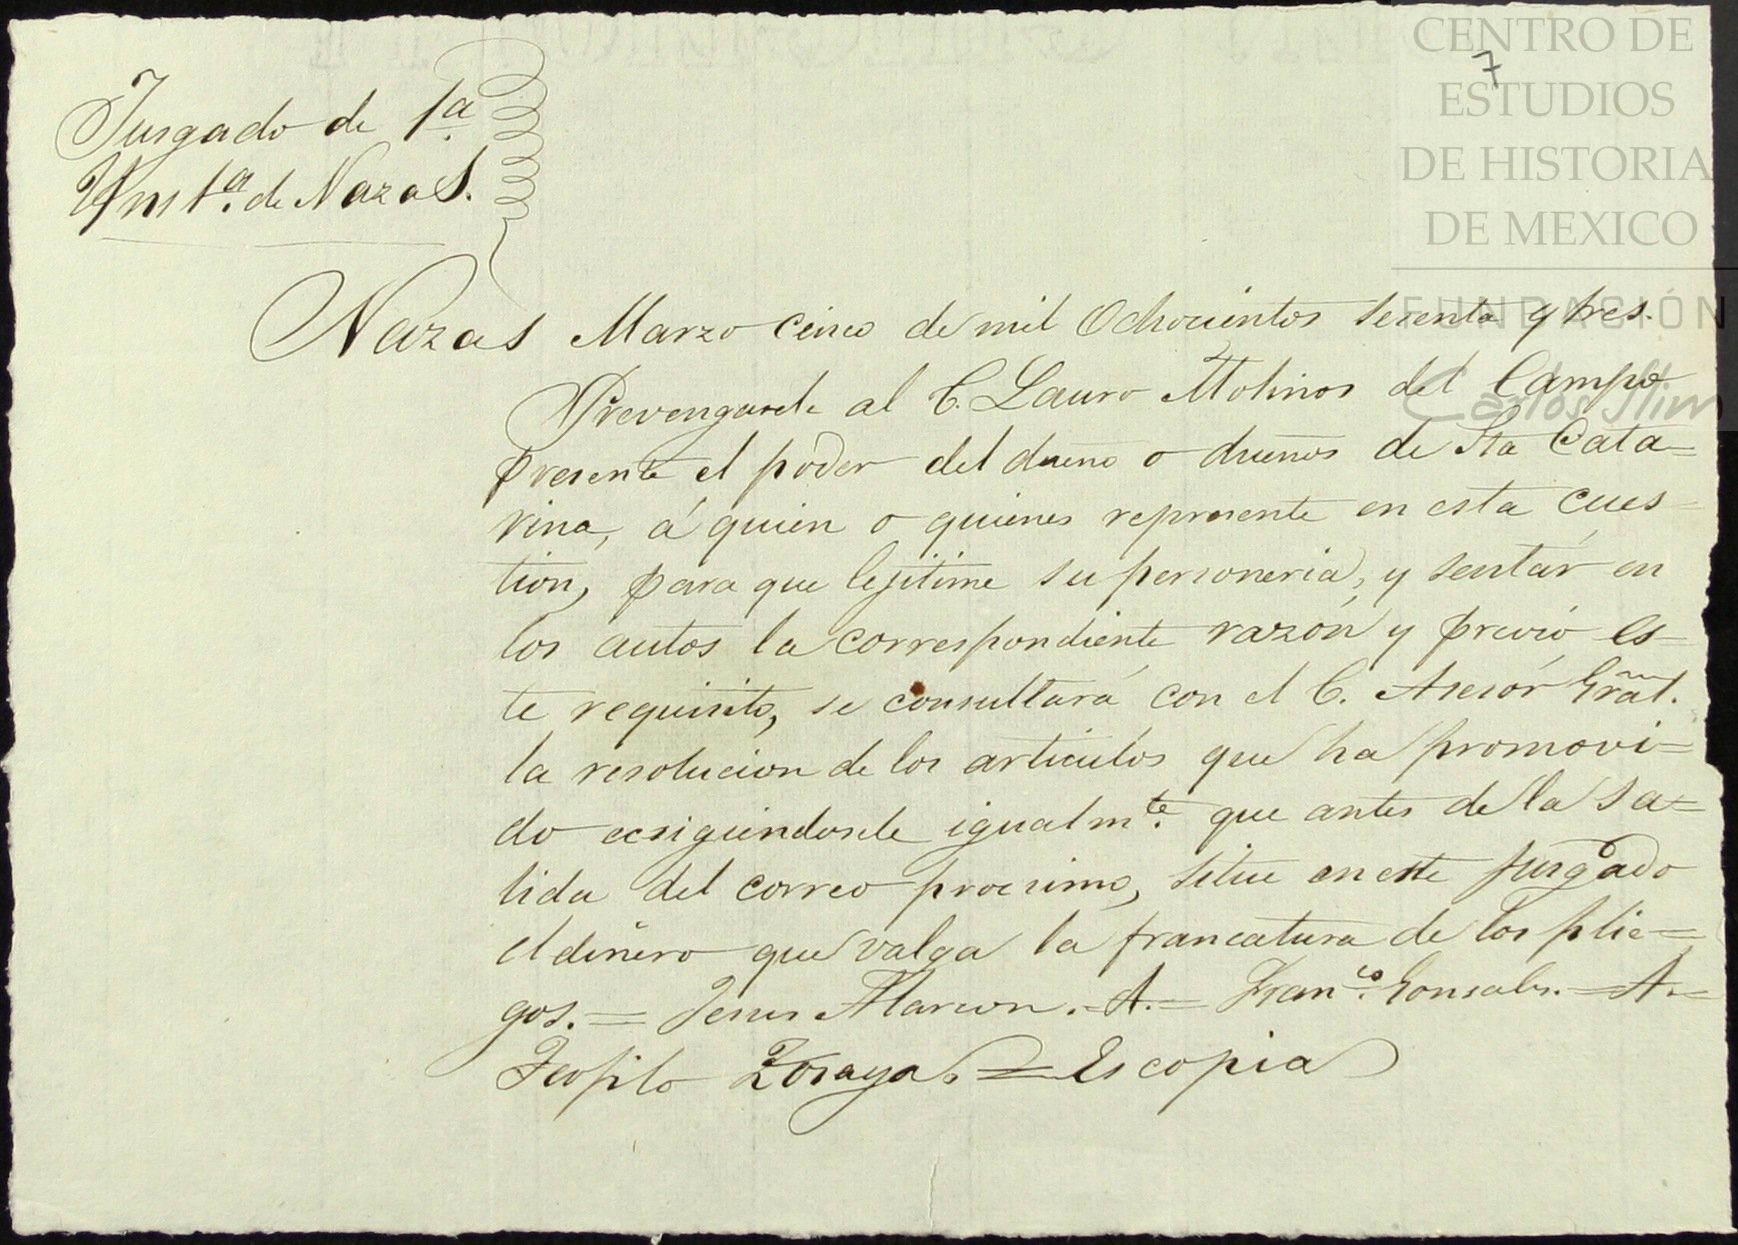 CENTRO DE
ESTUDIOS
DE HISTORIA
DE MEXICO
FUNDACIÓN
Carlos Slim
7
Jusgado de 1a.
Ynsta. de Nazas.
Nazas Marzo cinco de mil Ochocientos sesenta y tres.
Prevengasele al C. Lauro Molinos del Campo
presente el poder del dueño o dueños de Sta Cata=
rina, á quien o quienes represente en esta cues-
tion, para que lejitime su personeria, y sentár en
los autos la correspondiente razón y previó es-
te requisito, se consultará con el C. Asesór Gral.
la resolucion de los articulos que ha promovi=
do ecsigiendosele igualmte. que antes de la sa=
lida del correo procsimo, situe en este Jusgado
el diñero que valga la francatura de los plie=
gos.= Jesus Alarcon.=A.= Franco. Gonsales.=A.=
Teofilo Zoraya.= Es copia